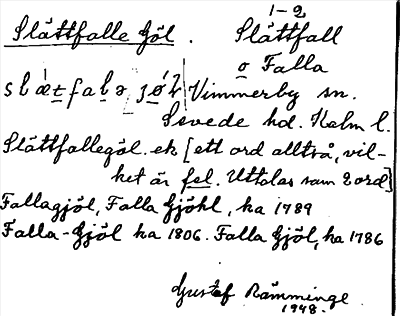 1-2
Slättfalle Göl. Slättfall
o Falla
Vimmerby sn.
Sevede hd. Kalm l.
Slättfallegöl. ek [ett ord alltså, vil-
ket är fel. Uttalas som 2 ord]
Fallagjöl, Falla Gjöhl, ha 1789
Falla-Gjöl ha 1806. Falla Gjöl, ha 1786
Gustaf Rämminge
1948.